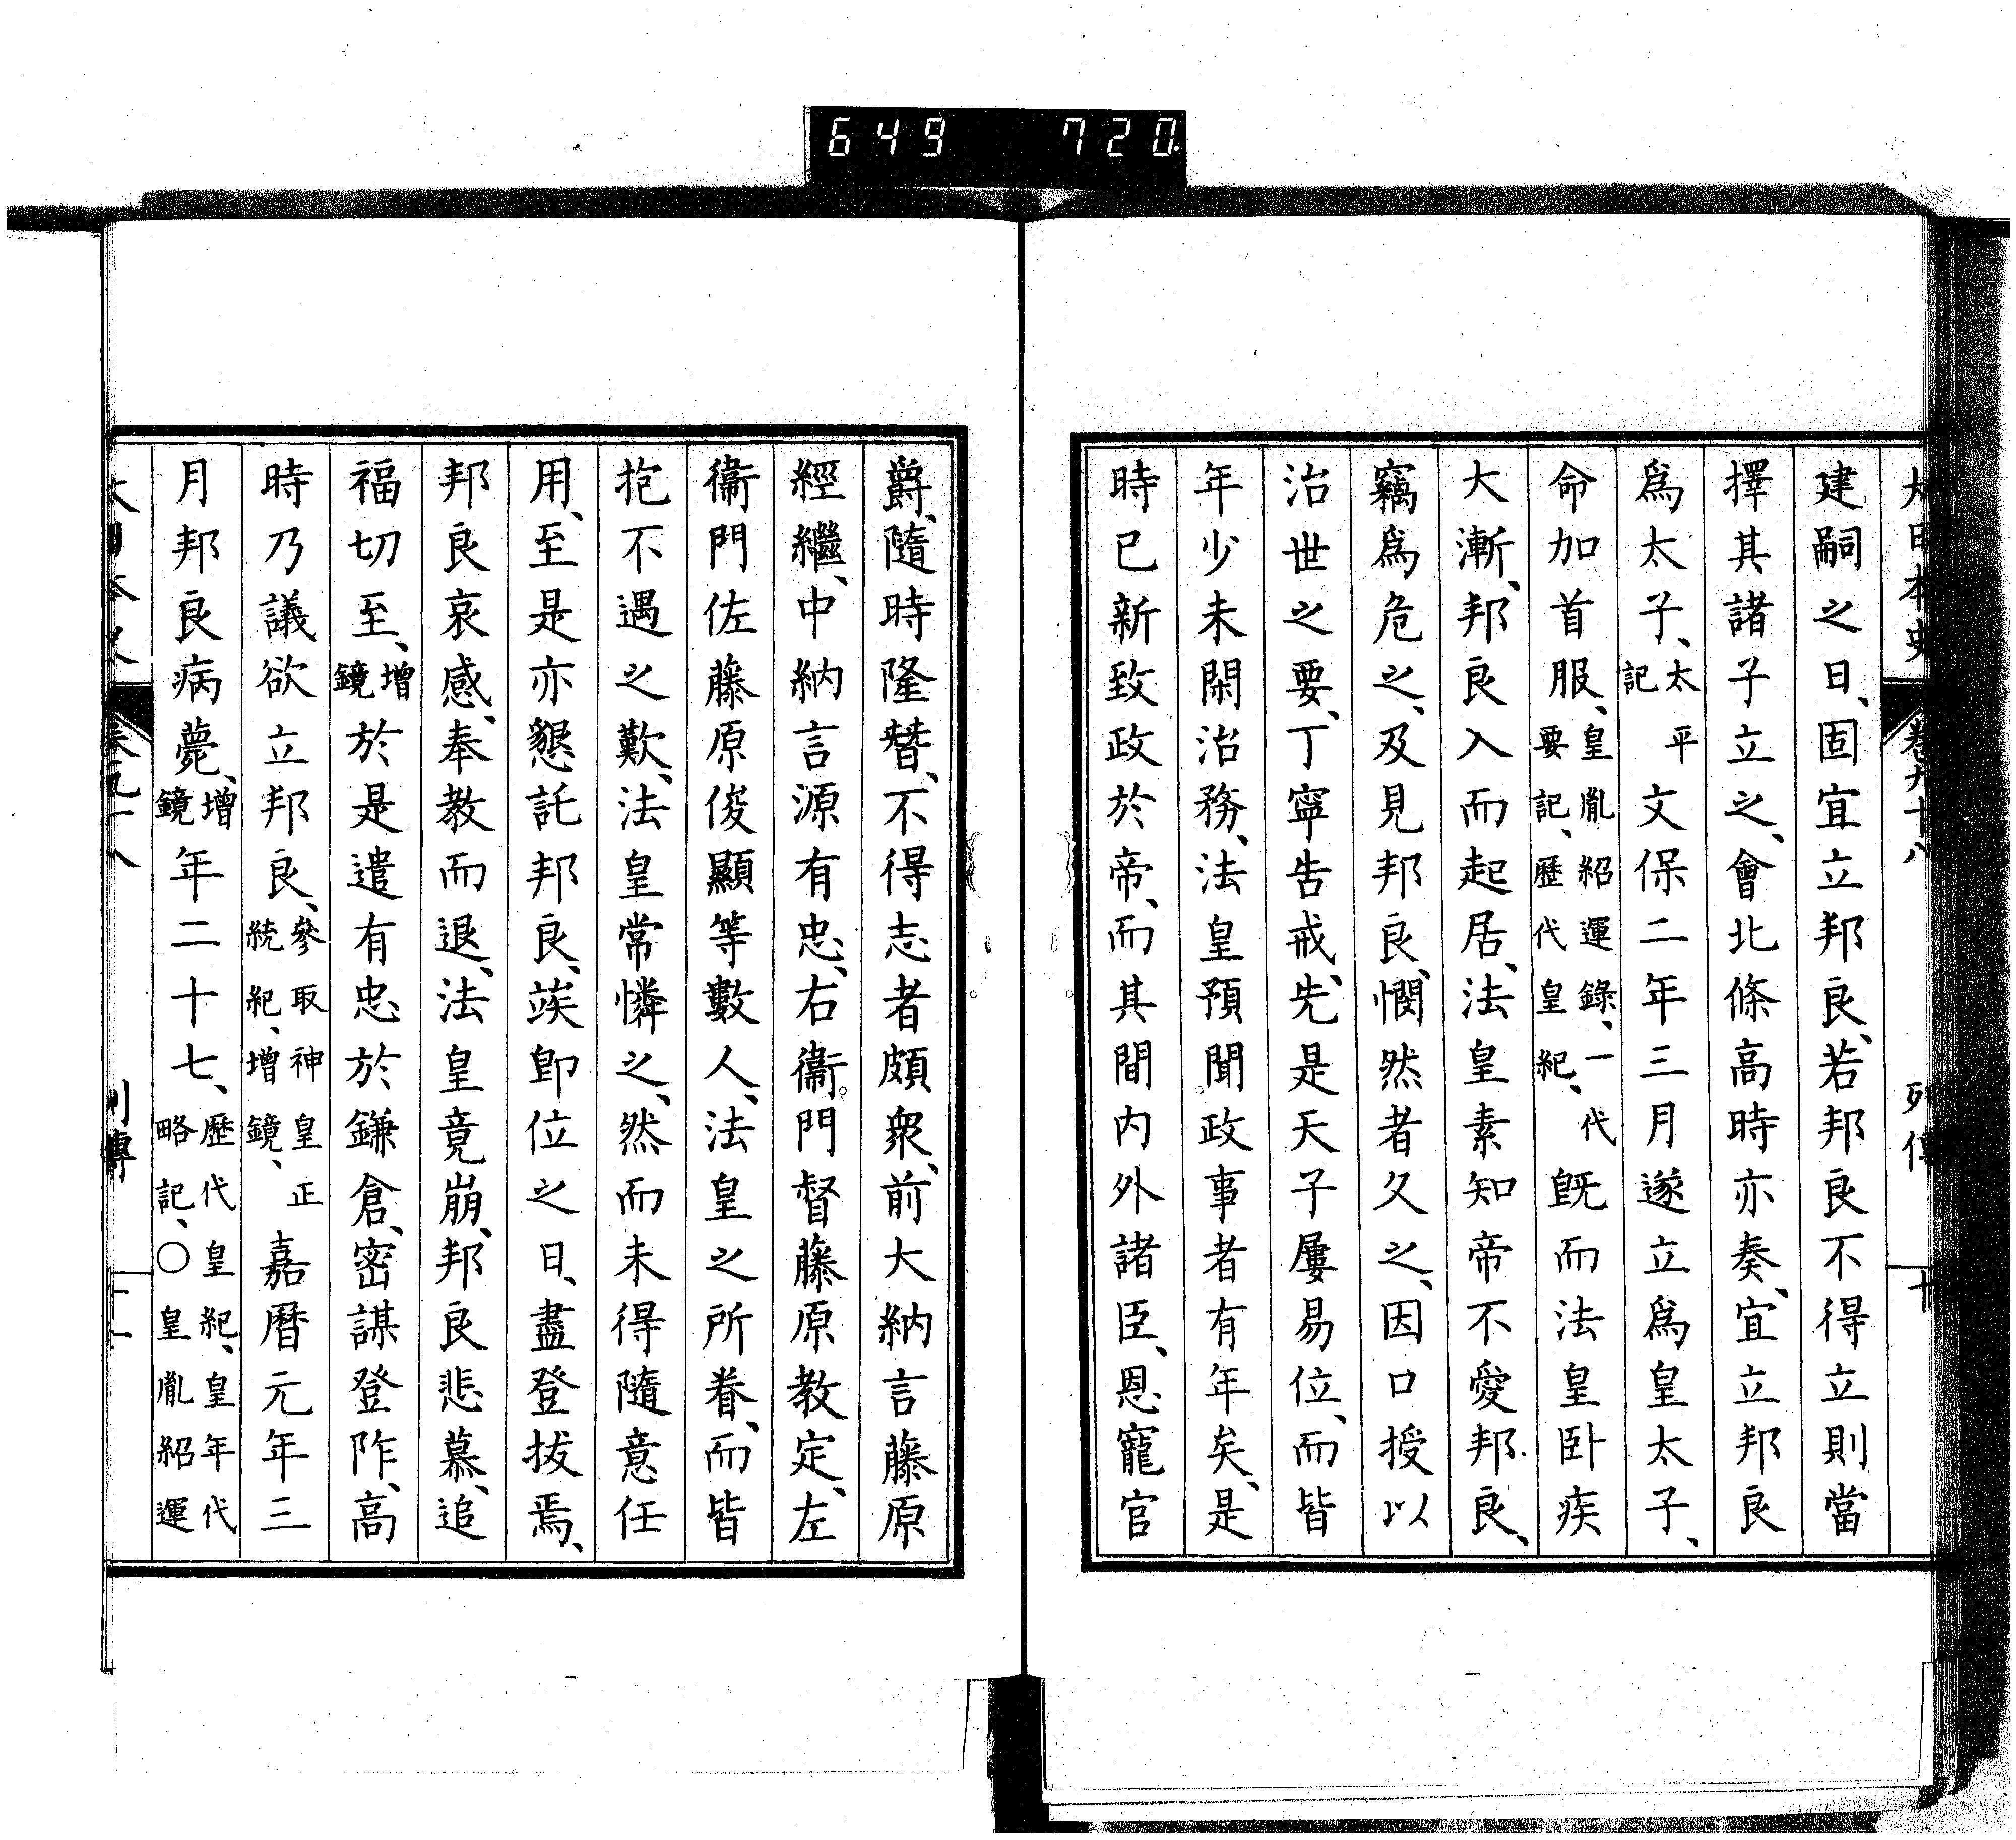 649 720
大日本史 卷九十八 列傳 十
建嗣之日、固宜立邦良、若邦良不得立則當
擇其諸子立之、會北條高時亦奏、宜立邦良
爲太子、太平記 文保二年三月遂立爲皇太子、
命加首服、皇胤紹運錄、一代要記、歷代皇紀、 旣而法皇卧疾
大漸、邦良入而起居、法皇素知帝不愛邦良、
竊爲危之、及見邦良、憫然者久之、因口授以
治世之要、丁寧告戒、先是天子屢易位、而皆
年少未閑治務、法皇預聞政事者有年矣、是
時已新致政於帝、而其間內外諸臣、恩寵官
爵、隨時隆替、不得志者頗衆、前大納言藤原
經繼、中納言源有忠、右衞門督藤原教定、左
衞門佐藤原俊顯等數人、法皇之所眷、而皆
抱不遇之歎、法皇常憐之、然而未得隨意任
用、至是亦懇託邦良、竢卽位之日、盡登拔焉、
邦良哀感、奉教而退、法皇竟崩、邦良悲慕、追
福切至、增鏡 於是遣有忠於鎌倉、密謀登阼、高
時乃議欲立邦良、參取神皇正統紀、增鏡、 嘉曆元年三
月邦良病薨、增鏡 年二十七、歷代皇紀、皇年代略記、○皇胤紹運
大日本史 卷九十八 列傳 十一